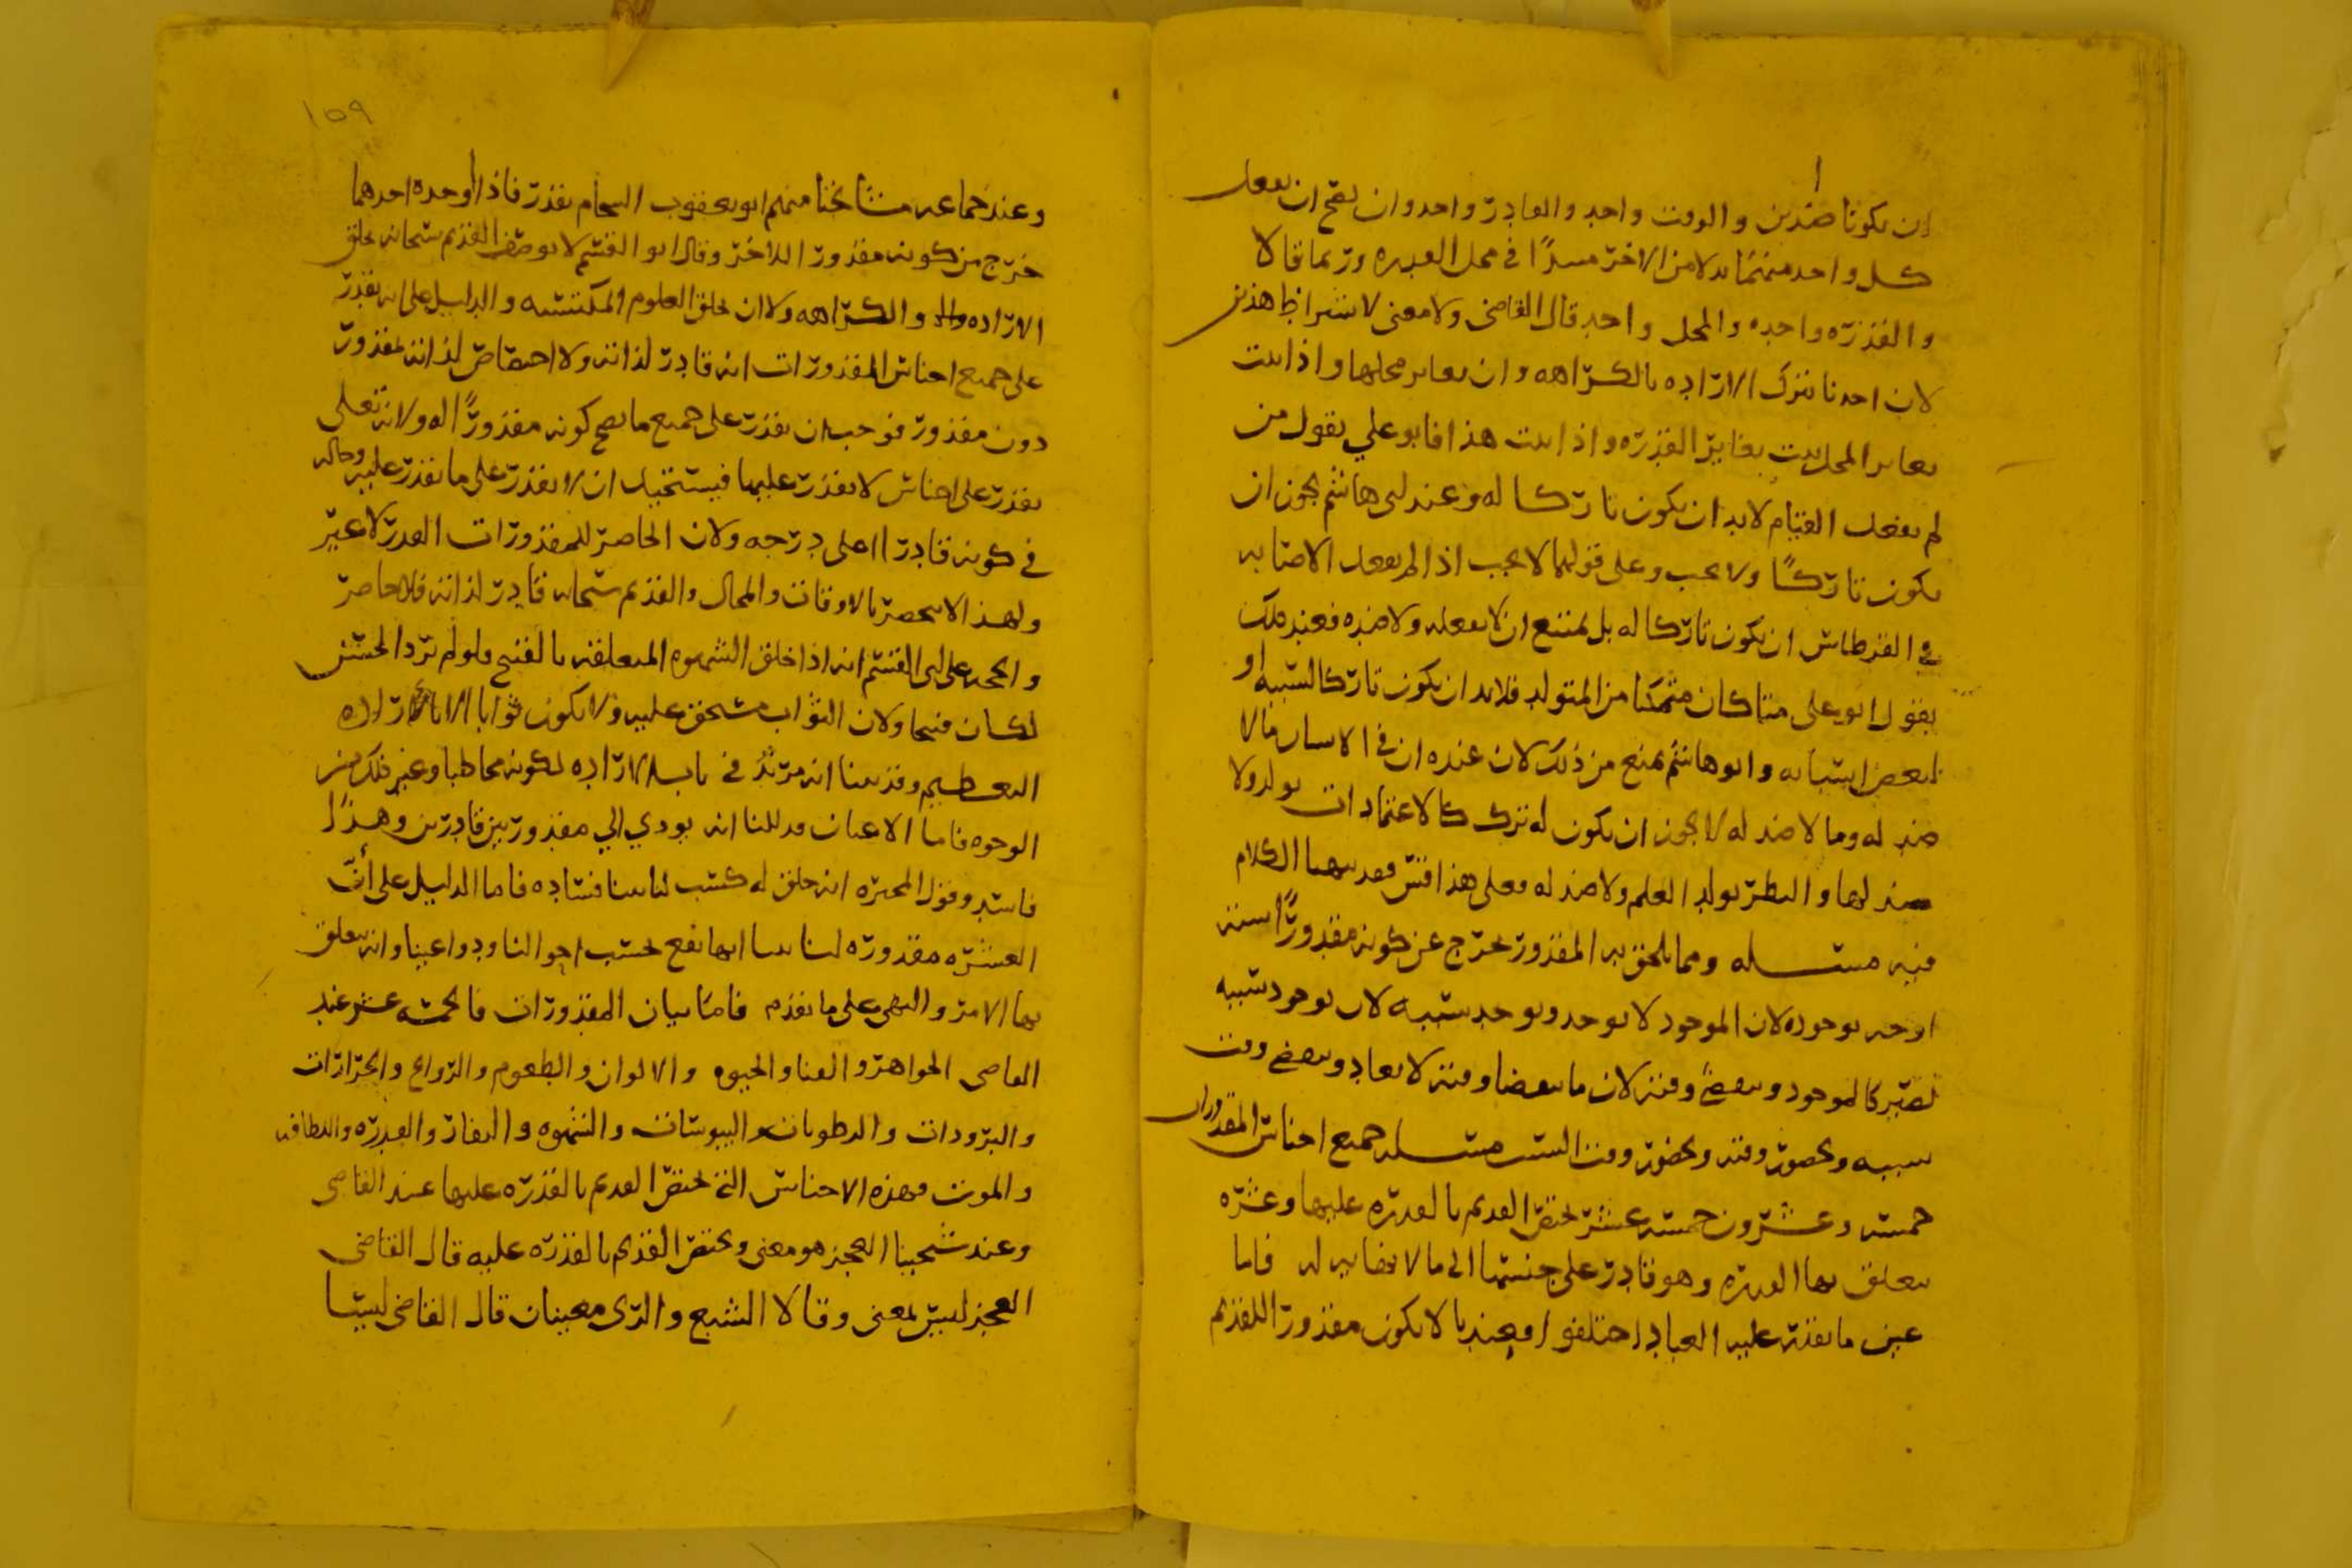 ان يكونا ضدين والوقت واحد والقادر واحد وان يصح ان يفعل
كل واحد منهما بدلا من الاخر مبتدا في محل القدره وربما قالا
والقدره واحده والمحل واحد قال القاضي ولا معنى لاشتراط هذين
لان احدنا يترك الاراده بالكراهه وان تغاير محلها واذا ثبت
تغاير المحل ثبت تغاير القدره واذا ثبت هذا فابو علي يقول من
لم يفعل القيام لابد ان يكون تاركا له وعند ابي هاشم يجوز ان
يكون تاركا ولا يجب وعلى قولهما لا يجب اذا لم يفعل الاصابه
في القرطاس ان يكون تاركا له بل يمتنع ان لا يفعله ولا ضده فعند ذلك
يقول ابو علي متا كان متمكنا من المتولد فلابد ان يكون تاركا لسببه او
لبعض اسبابه وابو هاشم يمنع من ذلك لان عنده ان في الاسباب ما لا
ضد له وما لا ضد له لا يجوز ان يكون له ترك كالاعتمادات يولد ولا
ضد لها والنظر يولد العلم ولا ضد له فعلى هذا فقس فقد بينا الكلام
فيه مسله ومما يلحق به المقدور يخرج عن كونه مقدورا
اوجه بوجوده لان الموجود لا يوجد وبوجود سببه لان بوجود سببه
يصير كالموجود وبتقضي وقته لان ما تقضا وقته لا يعاد وبتقضي وقت
سببه وبحضور وقته وبحضور وقت السبب مسله جميع اجناس المقدورات
خمسه وعشرون خمسه عشر يختص القديم بالقدره عليها وعشره
تتعلق بها القدره وهو قادر على جنسها الى ما لا نهايه له فاما
عين ما يقدر عليه العباد اختلفوا فعندنا لا يكون مقدورا للقديم
١٥٩
وعند جماعه مشائخنا منهم ابو يعقوب الشحام يقدر فاذا اوجده احدهما
خرج من كونه مقدورا للاخر وقال ابو القسم لا يوصف القديم سبحانه بخلق
الاراده والكراهه ولا ان يخلق العلوم المكتسبه والدليل على انه يقدر
على جميع اجناس المقدورات انه قادر لذاته ولا اختصاص لذاته بمقدور
دون مقدور فوجب ان يقدر على جميع ما يصح كونه مقدورا له ولانه تعالى
يقدر على اجناس لا نقدر عليها فيستحيل ان لا يقدر على ما نقدر عليه وحاله
في كونه قادرا اعلى درجه ولان الحاصر للمقدورات القدر لا غير
ولهذا لا ينحصر بالاوقات والمحال والقديم سبحانه قادر لذاته فلا حاصر
والحجه على ابي القسم انه اذا خلق الشهوه المتعلقه بالقبيح ولو لم يرد الحسن
لكان قبيحا ولان الثواب مستحق عليه ولا يكون ثوابا الا باراده
التعظيم وقد بينا انه مريد في باب الاراده لكونه مخاطبا وغير ذلك من
الوجوه فاما الاعيان فدللنا انه يودي الي مقدور بين قادرين وهذا
فاسد وقول المجبره انه خلق له كسب لنا بينا فساده فاما الدليل على ان
العشره مقدوره لنا بينا انها تقع بحسب احوالنا ودواعينا وانه يتعلق
بها الامر والنهي على ما تقدم فاما بيان المقدورات فالخمسه عشر عند
القاضي الجواهر والفنا والحيوه والالوان والطعوم والروايح والحرارات
والبرودات والرطوبات واليبوسات والشهوه والنفار والقدره
والموت فهذه الاجناس التي يختص القديم بالقدره عليها عند القاضي
وعند شيخينا العجز هو معنى ويختص القديم بالقدره عليه قال القاضي
العجز ليس بمعنى وقالا الشبع والري معنيان قال القاضي ليسا